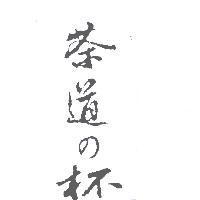 茶道の杯